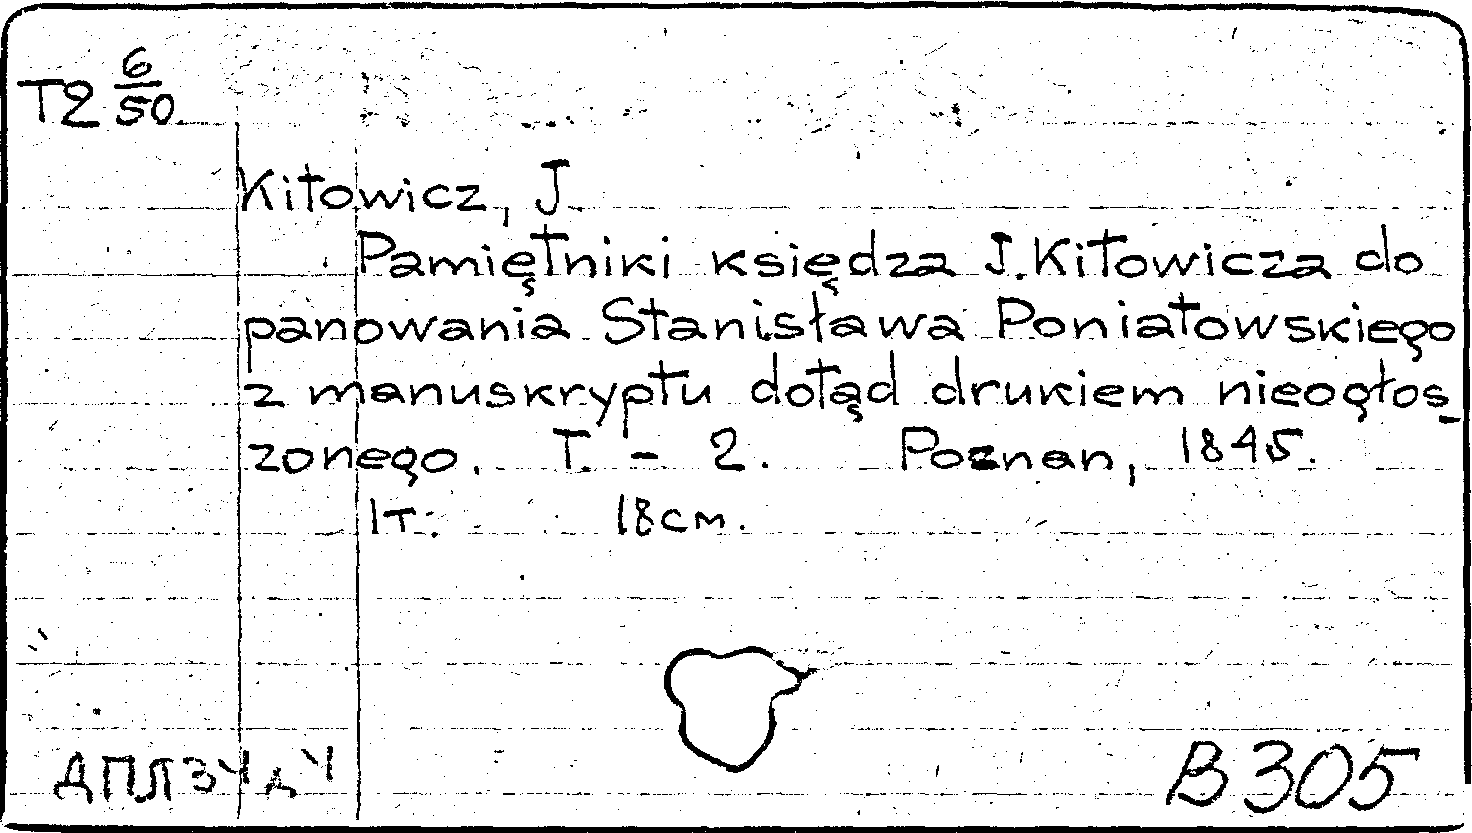 T2 6/50
Kitowicz, J
Pamiętniki księdza J. Kitowicza do
panowania Stanisława Poniatowskiego
z manuskryptu dotąd drukiem nieogłos-
zonego. T. - 2. Poznan, 1845.
1т. 18см.
B305